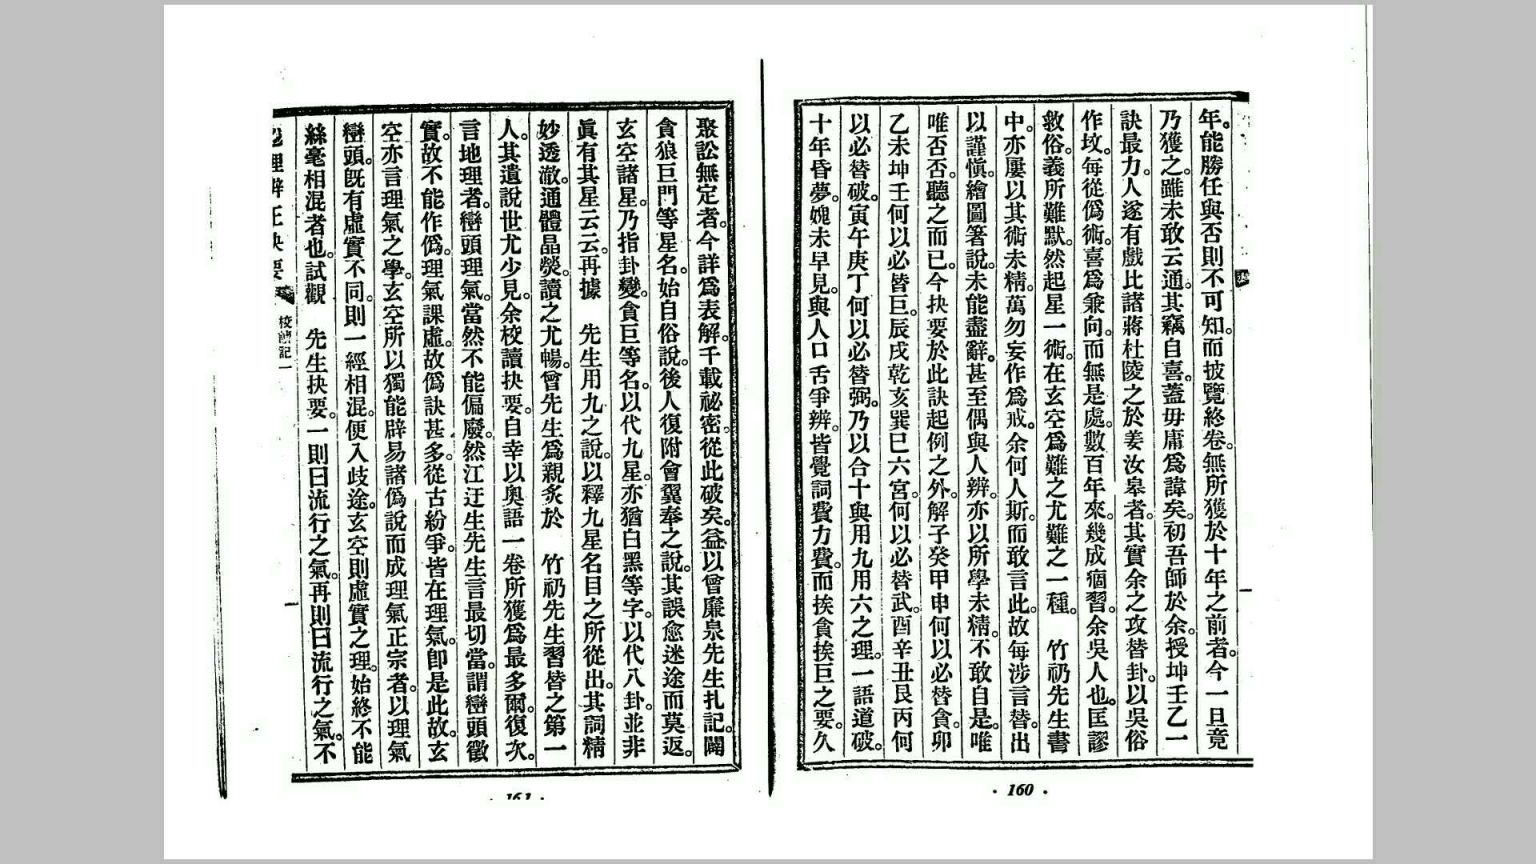 年。能勝任與否則不可知。而披覽終卷。無所獲於十年之前者。今一旦竟
乃獲之。雖未敢云通。其竊自喜。蓋毋庸爲諱矣。初吾師於余。授坤壬乙一
訣最力。人遂有戲比諸蔣杜陵之於姜汝皋者。其實余之攻替卦。以吳俗
作坟。每從僞術。喜爲兼向。而無是處。數百年來。幾成痼習。余吳人也。匡謬
救俗。義所難默。然起星一術。在玄空爲難之尤難之一種。 竹礽先生書
中。亦屢以其術未精。萬勿妄作爲戒。余何人斯。而敢言此。故每涉言替。出
以謹愼。繪圖箸說。未能盡辭。甚至偶與人辨。亦以所學未精。不敢自是。唯
唯否否。聽之而已。今抉要於此訣起例之外。解子癸甲申何以必替貪。卯
乙未坤壬何以必皆巨。辰戌乾亥巽巳六宮。何以必替武。酉辛丑艮丙何
以必替破。寅午庚丁何以必替弼。乃以合十與用九用六之理。一語道破。
十年昏夢。媿未早見。與人口舌爭辨。皆覺詞費力費。而挨貪挨巨之要。久
· 160 ·
聚訟無定者。今詳爲表解。千載祕密。從此破矣。益以曾廉泉先生扎記。闢
貪狼巨門等星名。始自俗說。後人復附會翼奉之說。其誤愈迷途而莫返。
玄空諸星。乃指卦變。貪巨等名。以代九星。亦猶白黑等字。以代八卦。並非
眞有其星云云。再據 先生用九之說。以釋九星名目之所從出。其詞精
妙透澈。通體晶熒。讀之尤暢。曾先生爲親炙於 竹礽先生習替之第一
人。其遺說世尤少見。余校讀抉要。自幸以奧語一卷所獲爲最多爾。復次。
言地理者。巒頭理氣。當然不能偏廢。然江迂生先生言最切當。謂巒頭徵
實。故不能作僞。理氣課虛。故僞訣甚多。從古紛爭。皆在理氣。卽是此故。玄
空亦言理氣之學。玄空所以獨能辟易諸僞說而成理氣正宗者。以理氣
巒頭。旣有虛實不同。則一經相混。便入歧途。玄空則虛實之理。始終不能
絲毫相混者也。試觀 先生抉要。一則曰流行之氣。再則曰流行之氣。不
地理辨正抉要 校讀記一